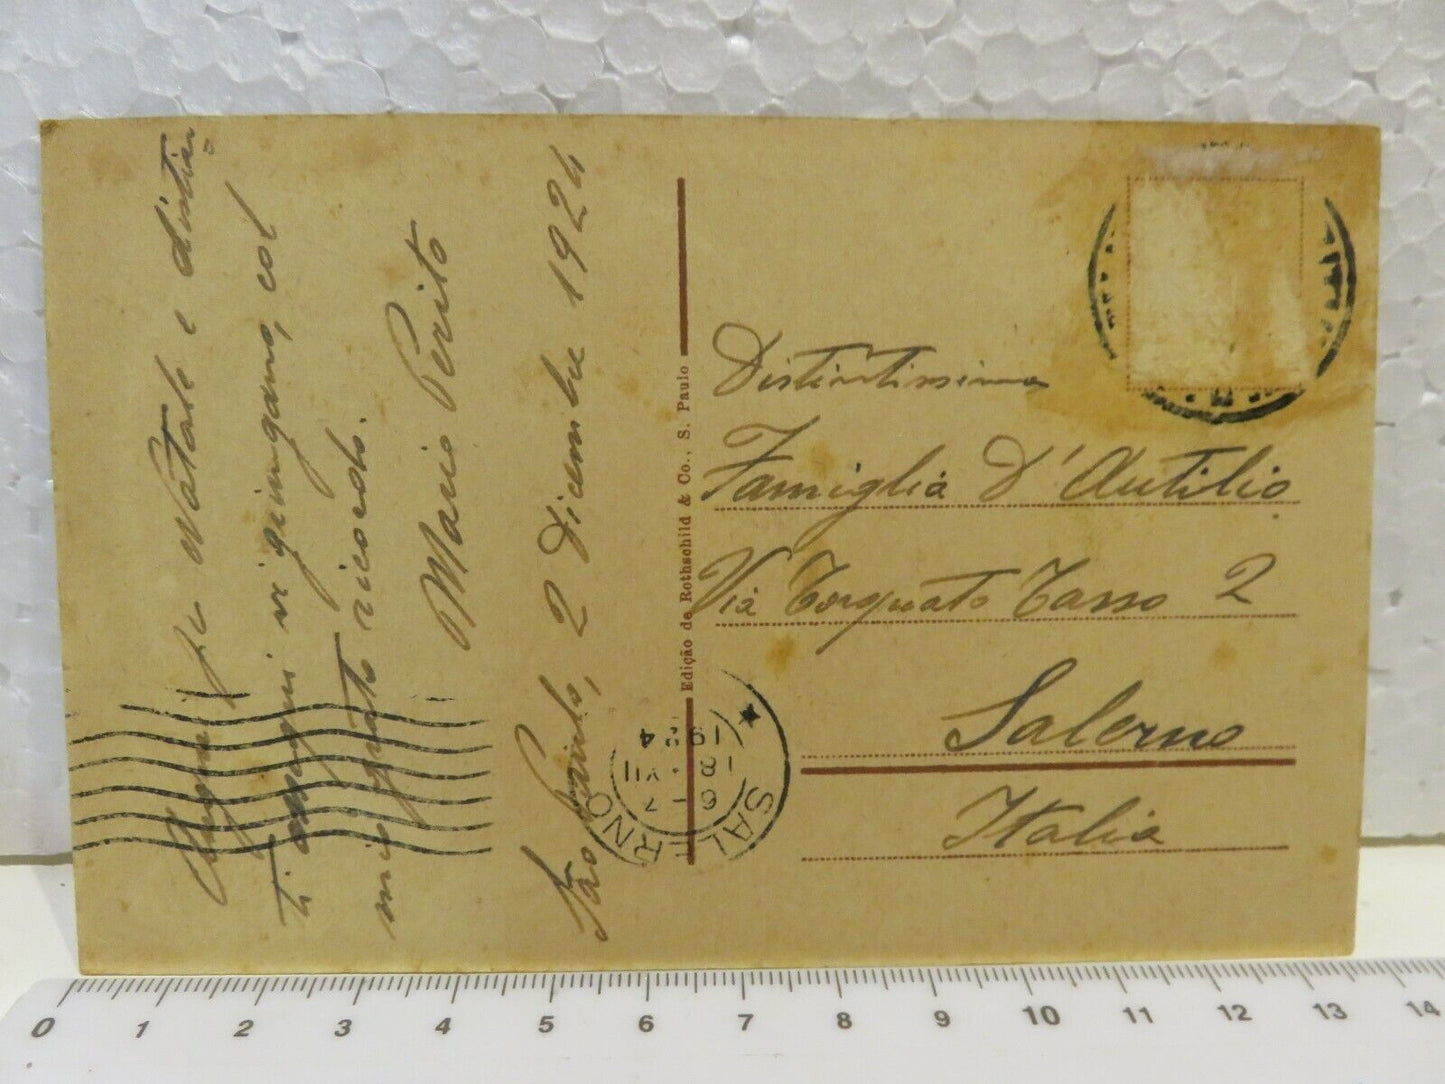 Auguri per Natale e distin
ti omaggi vi giungano, col
mio grato ricordo.
Mario Perito
São Paulo, 2 Dicembre 1924
Edição de Rothschild & Co., S. Paulo
Distintissima
Famiglia D'Autilio
Via Torquato Tasso 2
Salerno
Italia
SALERNO
6-7
18.XII
1924
0 1 2 3 4 5 6 7 8 9 10 11 12 13 14